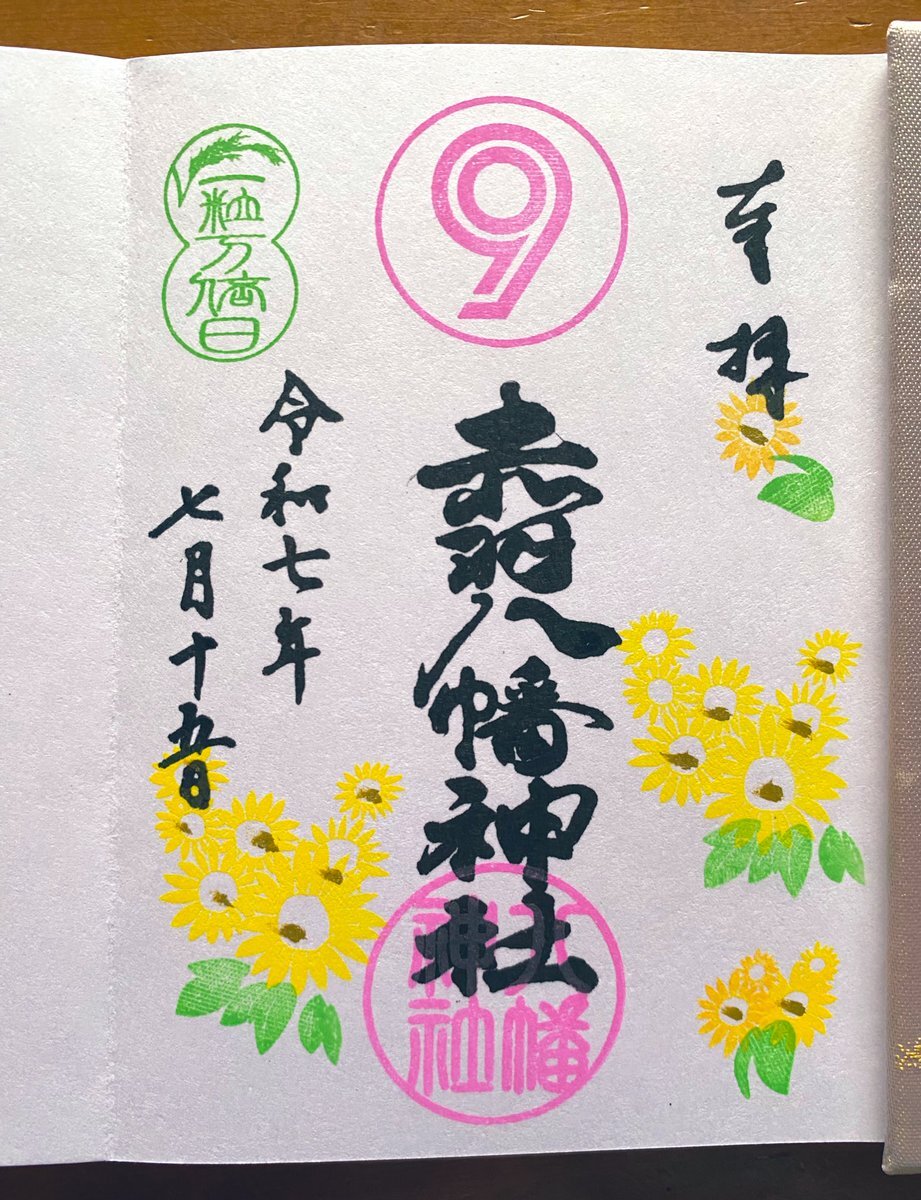 奉拝
9
赤羽八幡神社
八幡
神社
令和七年
七月十五日
一粒万倍日